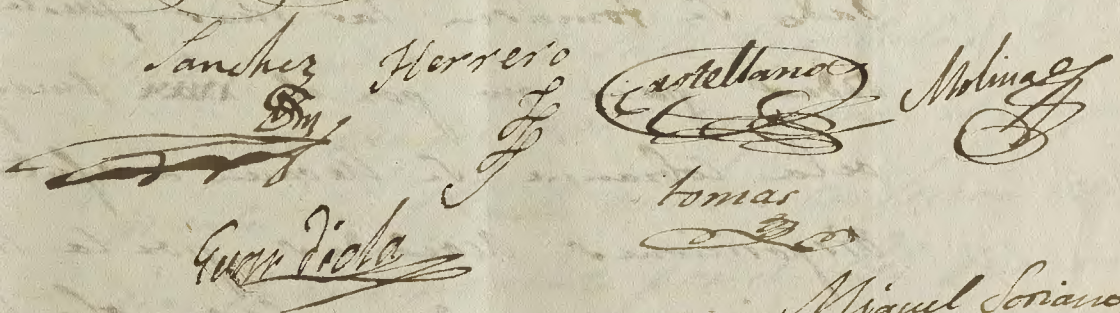 Sanchez Herrero Castellanos Molina
tomas
Guardiola
Miguel Soriano